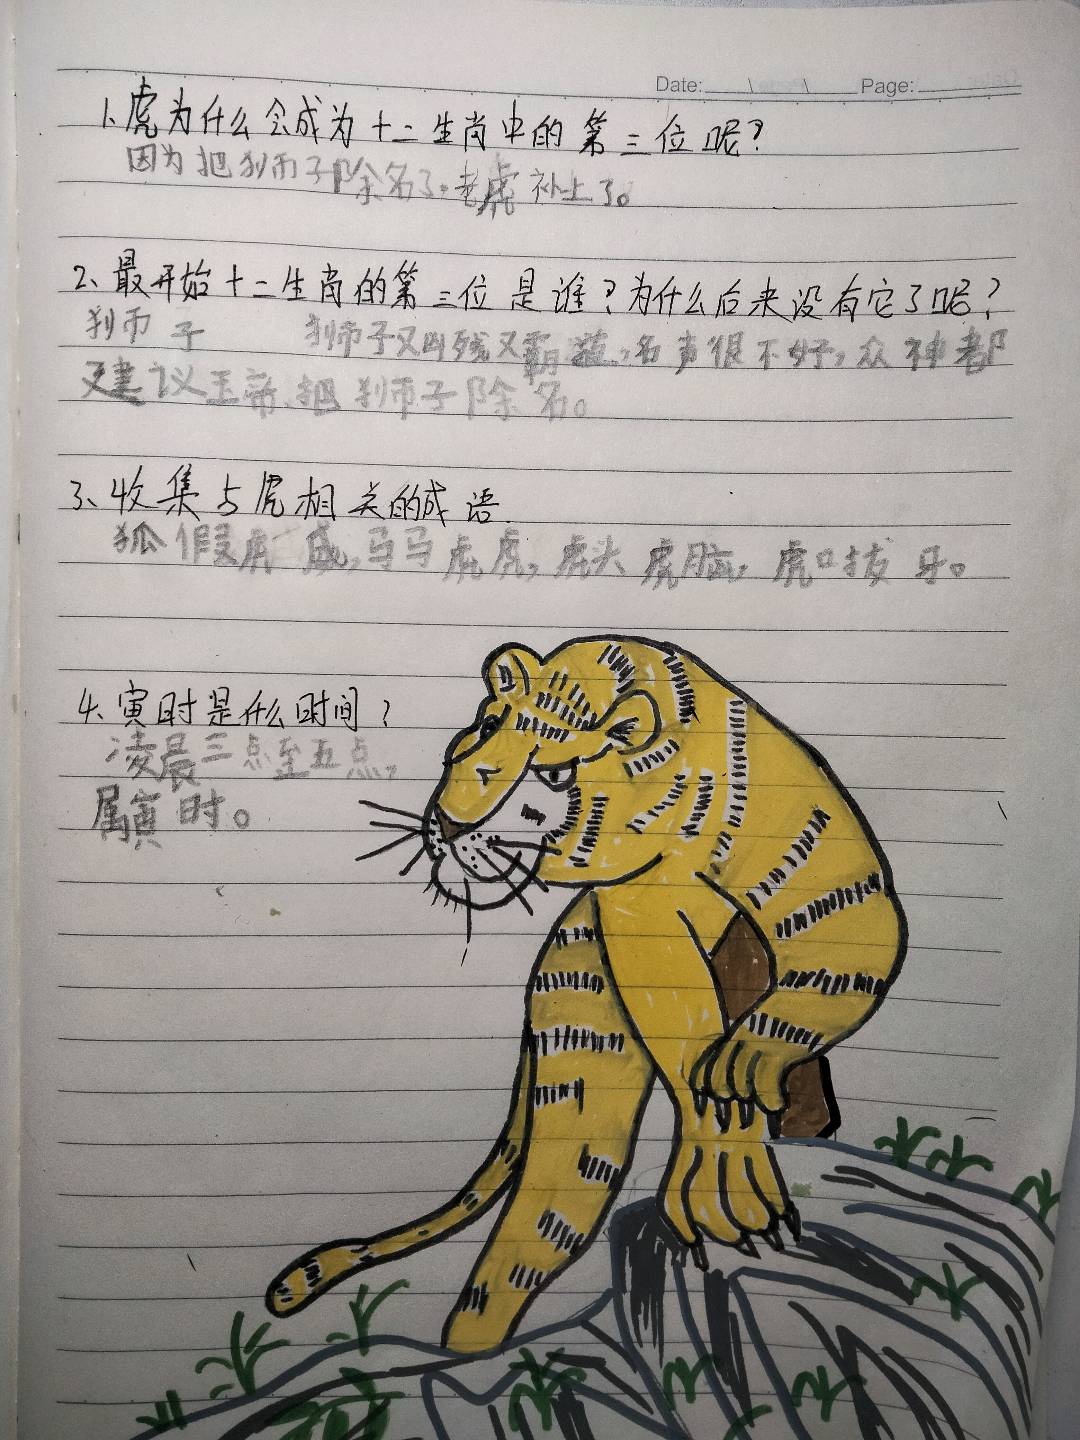 Date: / / Page:
1、虎为什么会成为十二生肖中的第三位呢?
因为把狮子除名了。老虎补上了。
2、最开始十二生肖的第三位是谁?为什么后来没有它了呢?
狮子 狮子又凶残又霸道,名声很不好,众神都
建议玉帝把狮子除名。
3、收集与虎相关的成语.
狐假虎威,马马虎虎,虎头虎脑,虎口拔牙。
4、寅时是什么时间?
凌晨三点至五点,
属寅时。